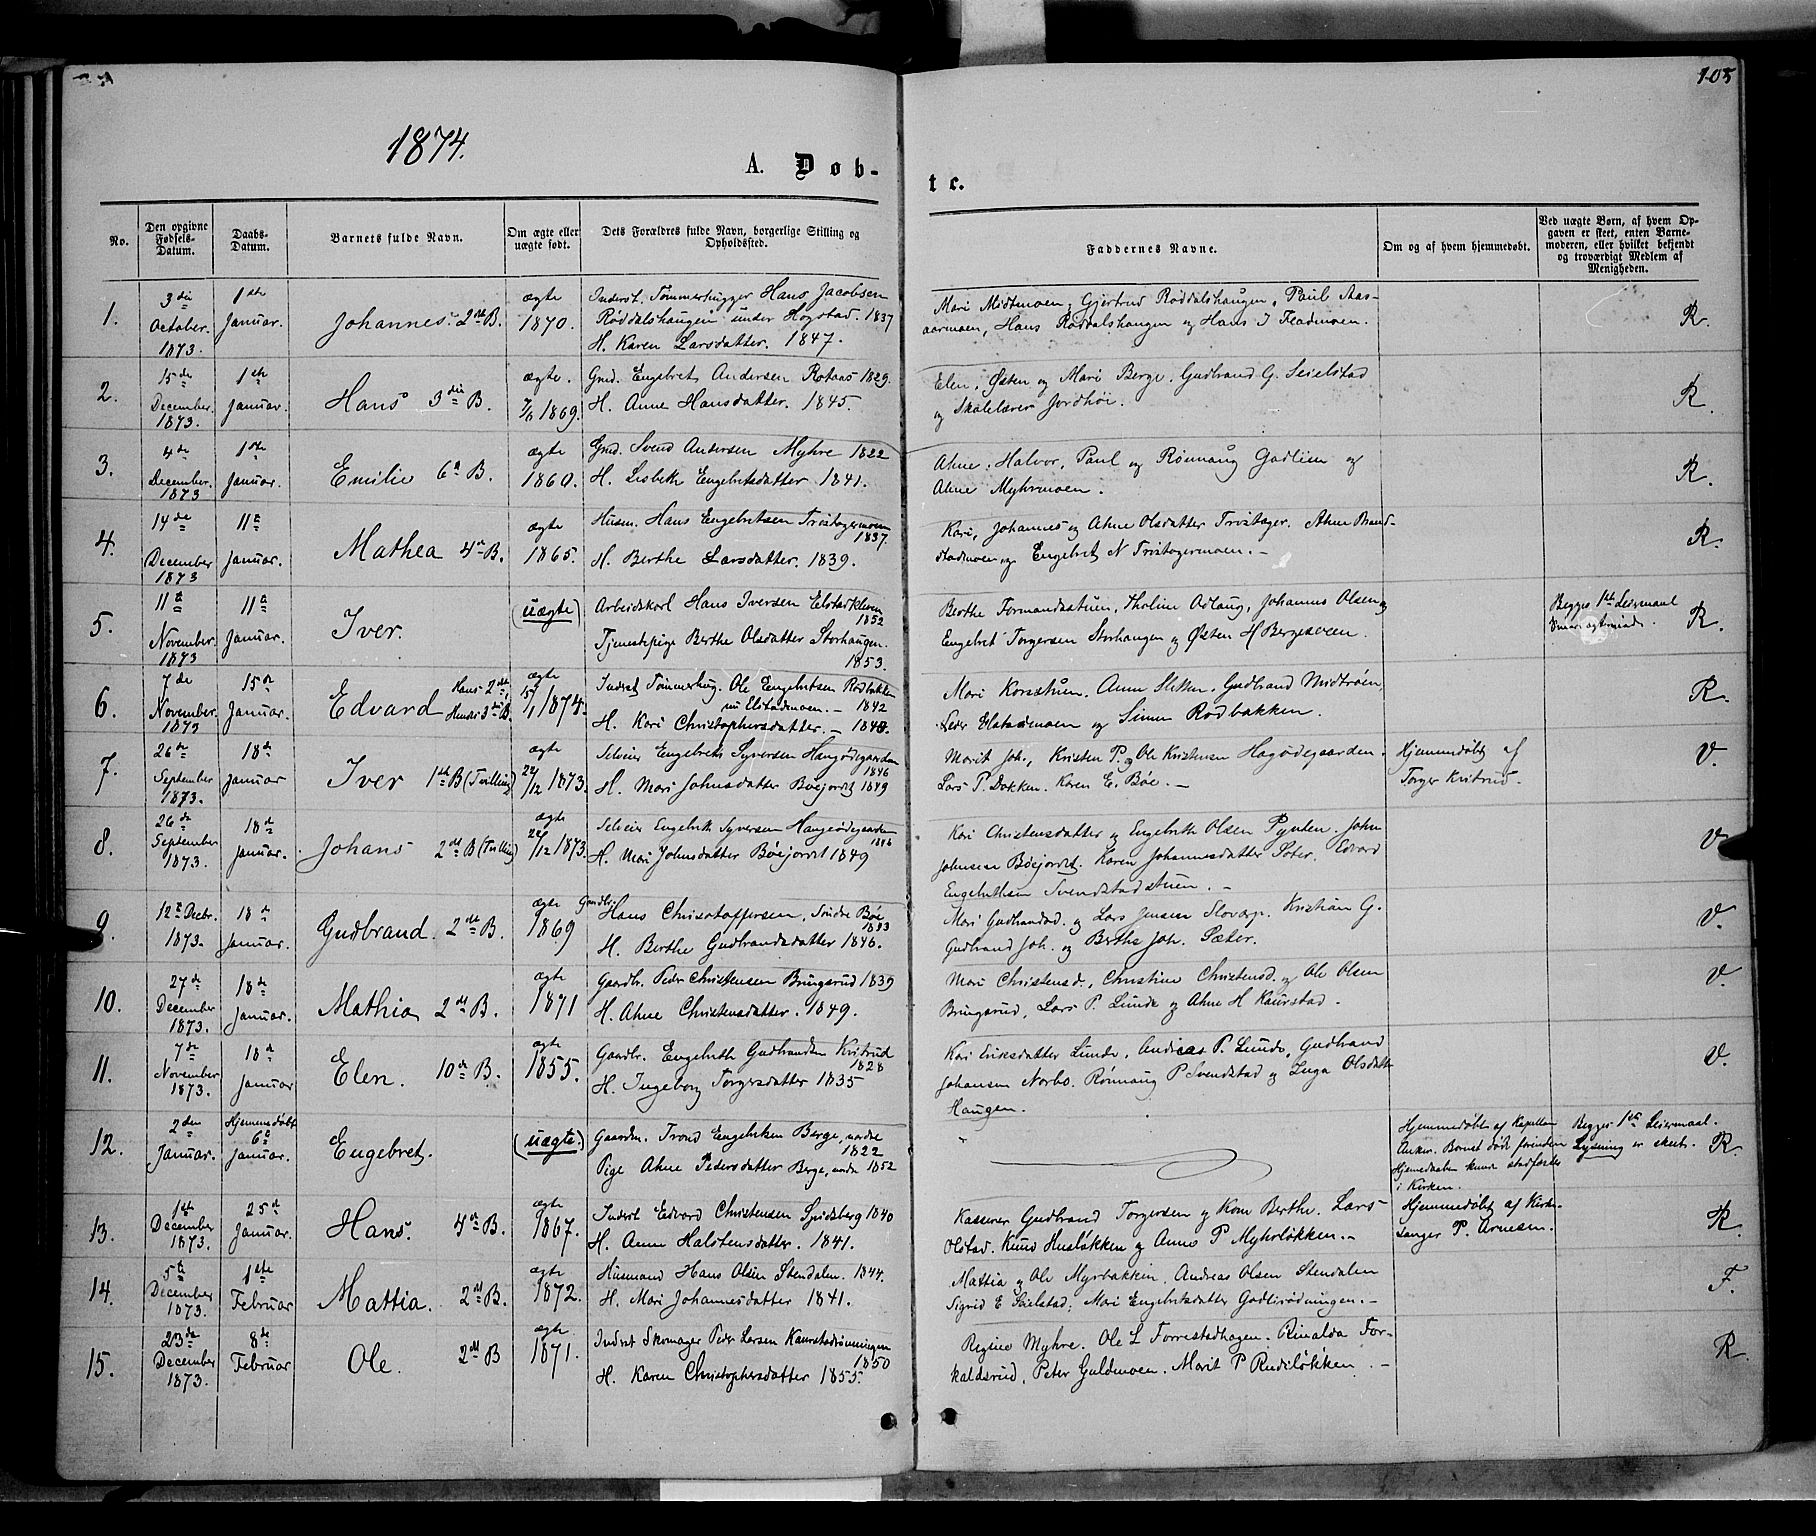 105
1874.
A. Døb-
te.
No.
Den opgivne Fødsels-Datum.
Daabs-Datum.
Barnets fulde Navn.
Om ægte eller uægte født.
Dets Forældres fulde Navn, borgerlige Stilling og Opholdssted.
Faddernes Navne.
Om og af hvem hjemmedøbt.
Ved uægte Børn, af hvem Opgaven er skeet, enten Barnemoderen, eller hvilket bekjendt og troværdigt Medlem af Menigheden.
1.
3die October. 1873.
1ste Januar.
Johannes. 2det B.
ægte 1870.
Inderst. Tømmerhugger Hans Jacobsen
Røddalshaugen under Hogstad. 1837
H. Karen Larsdatter. 1847.
Mari Midtmoen, Gjertrud Røddalshaugen, Paul Aas-
aarmoen, Hans Røddalshaugen og Hans J Fladmoen.
R.
2.
15de December. 1873.
1ste Januar.
Hans 3die B.
ægte. 1869.
Gmd. Engebret Andersen Rotaas 1829.
H. Anne Hansdatter. 1845.
Elen, Østen og Mari Berge. Gudbrand G. Seielstad
og Skolelærer Jordhøi.
R.
3.
4de December. 1873
1ste Januar.
Emilie 6te B.
ægte 1860.
Gmd. Svend Andersen Myhre 1822
H. Lisbeth Engebretsdatter 1841.
Ahne, Halvor, Paul og Rønnaug Gadlien og
Ahne Myhrmoen.
R.
4.
14de December 1873
11te Januar.
Mathea 4de B.
ægte 1865.
Husm. Hans Engebretsen Trostogermoen
1837.
H. Berthe Larsdatter. 1839.
Kari, Johannes og Ahne Olsdatter Trostoger. Ahne Brand-
stadmoen og Engebret N Trostogermoen.
R.
5.
11te November. 1873
11te Januar.
Iver.
(uægte)
Arbeidskarl Hans Iversen Elstadkleven
1852
Tjenestepige Berthe Olsdatter Storhaugen.
1853.
Berthe Formandsstuen, Tholine Aalaug, Johannes Olsen og
Engebret Torgersen Storhaugen og Østen H Bergesveen.
Begges 1ste Leiermaal
R.
6.
7de November. 1873
15de Januar.
Edvard
ægte 1874.
Inderst Tømmerhug. Ole Engebretsen Rødbakken
nu Elstadmoen. 1842
H. Kari Christophersdatter.
Mari Korsstuen. Anne Sletten. Gudbrand Midtmoen,
Peder Elstadmoen og Simen Rødbakken.
R.
7.
26de September 1873.
18de Januar
Iver 1ste B (Tvilling)
ægte 22/12 1873.
Selveier Engebreth Syversen Haugødegaarden
1846
H. Mari Johnsdatter Bøejordet 1849
Marit Joh., Kristen P. og Ole Kristensen Hagødegaarden.
Lars P. Dokken. Karen E. Bøe.
Hjemmedøbt af
Torger Kvitrud.
V.
8.
26de September 1873.
18de Januar.
Johans 2det B (Tvilling)
ægte 22/12 1873.
Selveier Engebreth Syversen Haugeødegaarden
1846
H. Mari Johnsdatter Bøejordet 1849
Kari Christensdatter og Engebreth Olsen Pynten. John
Johnsen Bøejordet. Karen Johannesdatter Sæter. Edvard
Engebrethsen Svendstadstuen.
V.
9.
12te Decbr. 1873.
18de Januar.
Gudbrand. 2det B.
ægte 1869
Hans Christoffersen, Søndre Bøe
H. Berthe Gudbrandsdatter 1846.
Mari Gudbrandsd. og Lars Jensen Sloverp. Kristian G.
Gudbrand Joh. og Berthe Joh. Sæter.
V.
10.
27de December 1873.
18de Januar.
Mathia 2det B.
ægte 1871
Gaardbr. Peder Christensen Bringsrud 1839
H. Ahne Christensdatter. 1849.
Mari Christensd., Christine Christensd. og Ole Olsen
Bringsrud, Lars P. Lunde og Ahne H Kaurstad.
V.
11.
7de November 1873.
18de Januar
Elen. 10de B.
ægte 1855.
Gaardbr. Engebreth Gudbrandsen Kvitrud
1828
H. Ingeborg Torgersdatter 1835
Kari Eriksdatter Lunde, Andreas P. Lunde, Gudbrand
Johansen Norbo. Rønnaug P Svendstad og Inga Olsdatter
Haugen.
V.
12.
2den Januar.
Hjemmedøbt 6te Januar.
Engebret.
(uægte)
Gaardm. Trond Engebretsen Berge, nordre
1822
Pige Ahne Pedersdatter Berge, nordre 1852
Hjemmedøbt af Kapellan
Anker. Barnet døde forinden
Hjemmedaaben kunde stadfæstes
i Kirken.
Begges 1ste Leiermaal.
Lysning er skeet.
R.
13.
1ste December 1873.
25de Januar.
Hans. 4de B.
ægte 1867.
Inderst Edvard Christensen Spidsberg 1840
H. Anne Halstensdatter. 1841.
Kasserer Gudbrand Torgersen og Kone Berthe. Lars
Olstad. Knud Husløkken og Anne P Myhrløkken.
Hjemmedøbt af Kirke-
sanger P. Arnesen.
R.
14.
5te December 1873.
1ste Februar
Mattia. 2det B.
ægte 1872.
Husmand Hans Olsen Stendalen. 1844.
H. Mari Johannesdatter 1841.
Mattia og Ole Myrbakken. Andreas Olsen Stendalen
Sigrid E Seielstad; Mari Engebretsdatter Godlirødningen.
F.
15.
23de December 1873.
8de Februar
Ole. 2det B
ægte 1871.
Inderst Skomager Peder Larsen Kaurstadrønningen
1850
H. Karen Christophersdatter 1855.
Regine Myhre. Ole L Forrestadhagen. Rinalda For-
kaldsrud, Peter Guldmoen. Marit P Rudiløkken.
R.